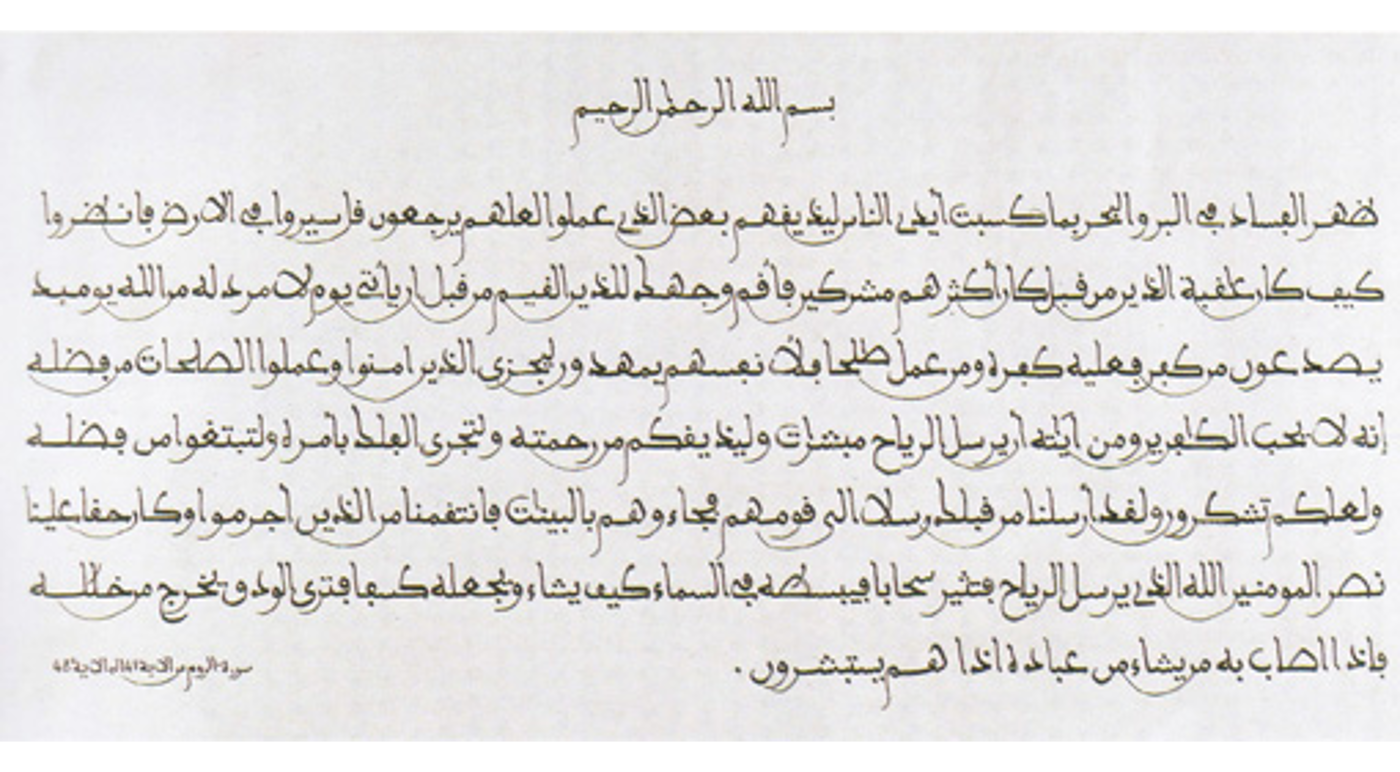 بسم الله الرحمن الرحيم
ظهر الفساد في البر والبحر بما كسبت أيدي الناس ليذيقهم بعض الذي عملوا لعلهم يرجعون فل سيروا في الارض فانظروا
كيف كان عقبة الذين من قبل كان أكثرهم مشركين فأقم وجهك للذين القيم من قبل ان يأتي يوم لا مرد له من الله يومئذ
يصدعون من كفر فعليه كفره ومن عمل صلحا فلأنفسهم يمهدون ليجزي الذين امنوا وعملوا الصلحات من فضله
إنه لا يحب الكفرين ومن آيته أن يرسل الرياح مبشرت وليذيقكم من رحمته ولتجري الفلك بأمره ولتبتغوا من فضله
ولعلكم تشكرون ولقد أرسلنا من قبلك رسلا الى قومهم فجاءوهم بالبينت فانتقمنا من الذين أجرموا وكان حقا علينا
نصر المومنين الله الذي يرسل الرياح فتثير سحابا فيبسطه في السماء كيف يشاء ويجعله كسفا فترى الودق يخرج من خلله
فإذا اصاب به من يشاء من عباده اذا هم يستبشرون .
سورة الروم من الاية 41 الى الاية 48